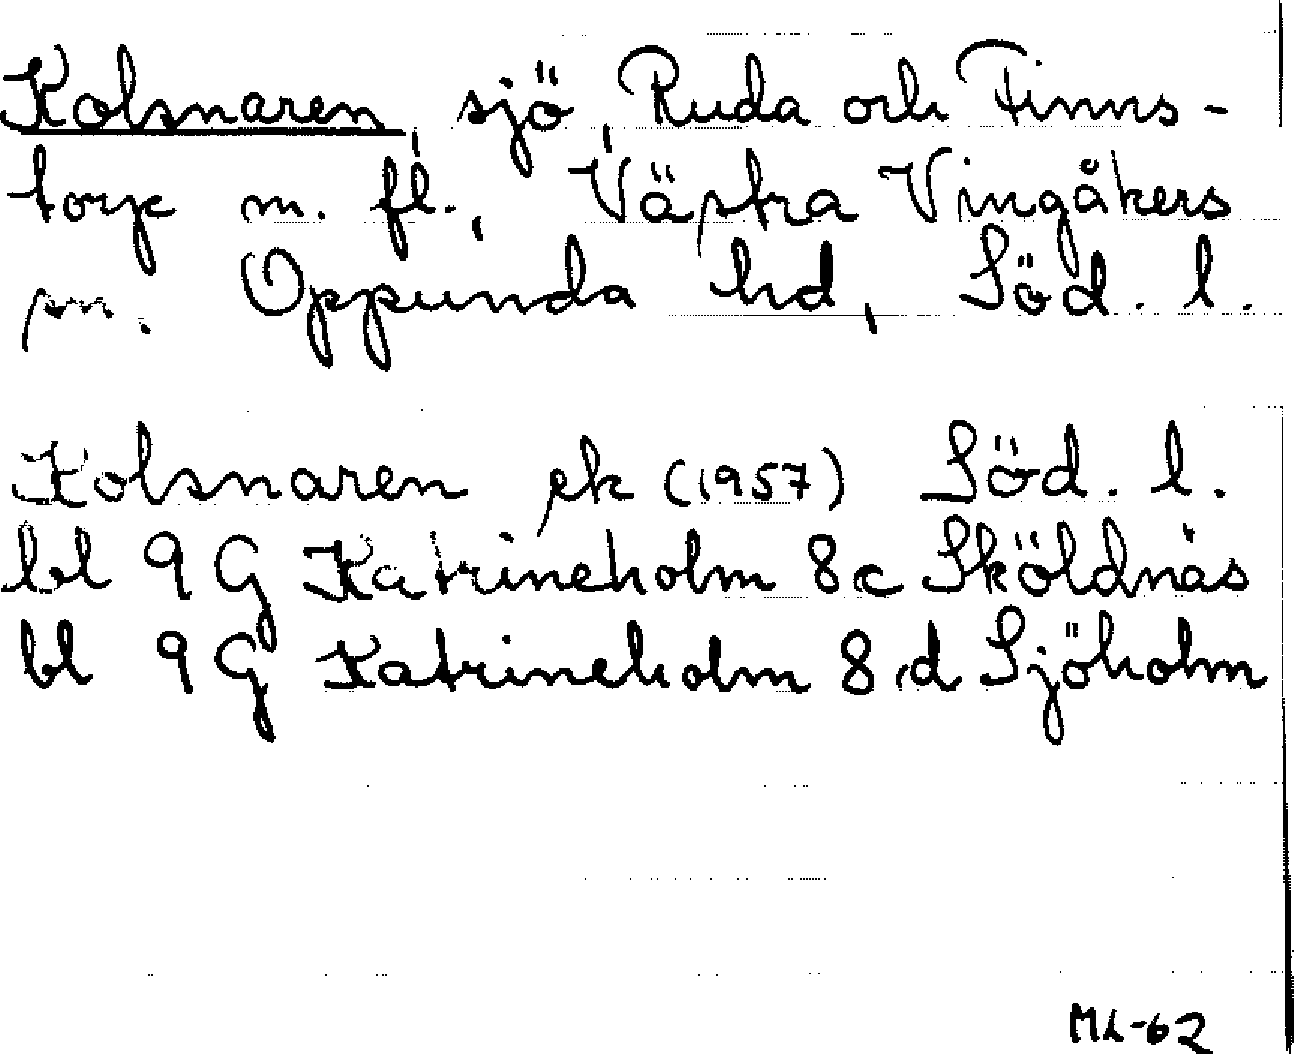 Kolsnaren, sjö, Ruda och Finns-
torp m. fl., Västra Vingåkers
sn. Oppunda hd, Söd. l.
Kolsnaren ek (1957) Söd. l.
bl 9 G Katrineholm 8 c Sköldnäs
bl 9 G Katrineholm 8 d Sjöholm
ML-62